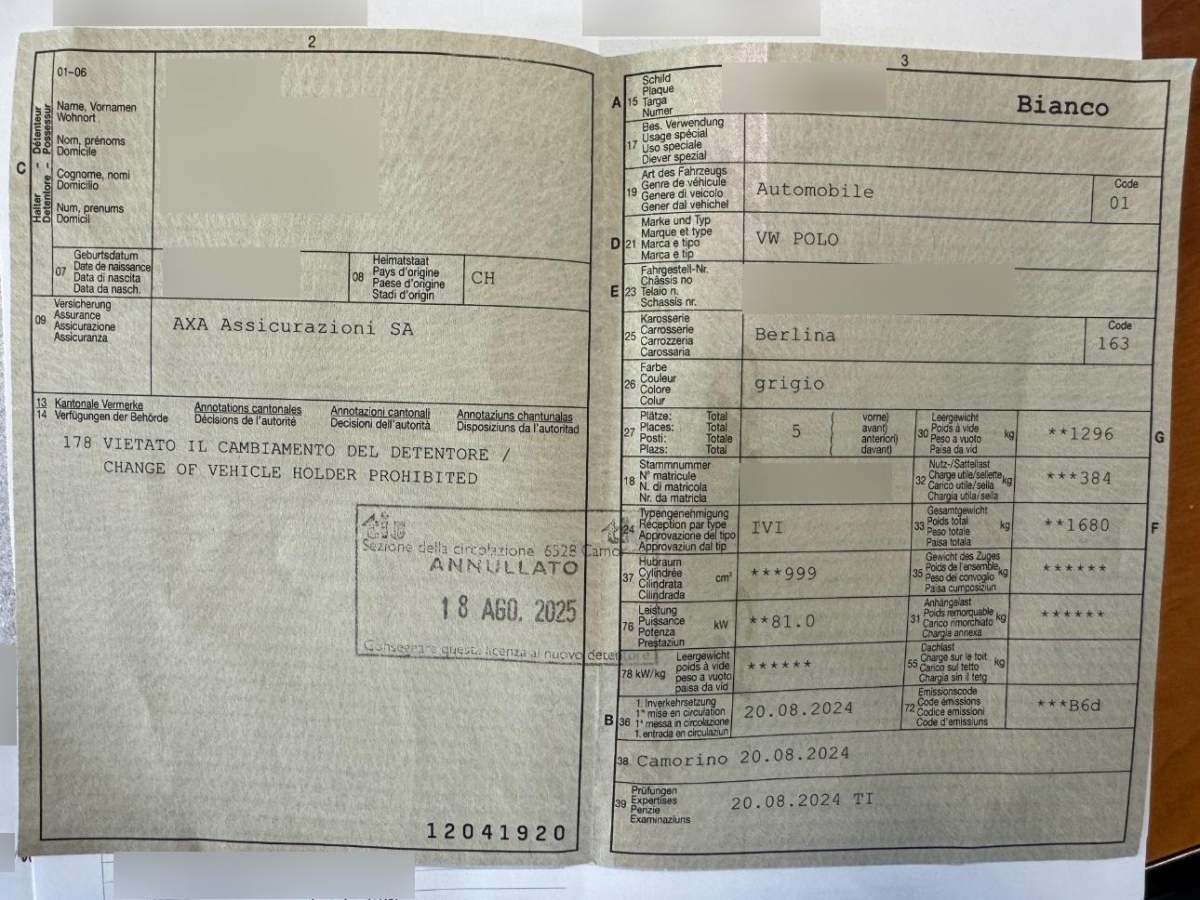 2
01–06
Halter – Détenteur
Detentore – Possessur
C
Name, Vornamen
Wohnort
Nom, prénoms
Domicile
Cognome, nomi
Domicilio
Num, prenums
Domicil
07
Geburtsdatum
Date de naissance
Data di nascita
Data da nasch.
08
Heimatstaat
Pays d'origine
Paese d'origine
Stadi d'origin
CH
09
Versicherung
Assurance
Assicurazione
Assicuranza
AXA Assicurazioni SA
13 Kantonale Vermerke Annotations cantonales Annotazioni cantonali Annotaziuns chantunalas
14 Verfügungen der Behörde Décisions de l'autorité Decisioni dell'autorità Disposiziuns da l'autoritad
178 VIETATO IL CAMBIAMENTO DEL DETENTORE /
CHANGE OF VEHICLE HOLDER PROHIBITED
Sezione della circolazione 6528 Camo
ANNULLATO
18 AGO. 2025
Consegnare questa licenza al nuovo
12041920
3
A 15
Schild
Plaque
Targa
Numer
Bianco
17
Bes. Verwendung
Usage spécial
Uso speciale
Diever spezial
19
Art des Fahrzeugs
Genre de véhicule
Genere di veicolo
Gener dal vehichel
Automobile
Code
01
D 21
Marke und Typ
Marque et type
Marca e tipo
Marca e tip
VW POLO
E 23
Fahrgestell-Nr.
Châssis no
Telaio n.
Schassis nr.
25
Karosserie
Carrosserie
Carrozzeria
Carossaria
Berlina
Code
163
26
Farbe
Couleur
Colore
Colur
grigio
27
Plätze: Total
Places: Total
Posti: Totale
Plazs: Total
5
vorne)
avant)
anteriori)
davant)
30
Leergewicht
Poids à vide
Peso a vuoto
Paisa da vid
kg
**1296
G
18
Stammnummer
N° matricule
N. di matricola
Nr. da matricla
32
Nutz-/Sattellast
Charge utile/sellette
Carico utile/sella
Chargia utila/sella
kg
***384
24
Typengenehmigung
Réception par type
Approvazione del tipo
Approvaziun dal tip
IVI
33
Gesamtgewicht
Poids total
Peso totale
Paisa totala
kg
**1680
F
37
Hubraum
Cylindrée
Cilindrata
Cilindrada
cm³
***999
35
Gewicht des Zuges
Poids de l'ensemble
Peso del convoglio
Paisa cumposiziun
kg
******
76
Leistung
Puissance
Potenza
Prestaziun
kW
**81.0
31
Anhängelast
Poids remorquable
Carico rimorchiato
Chargia annexa
kg
******
78 kW/kg
Leergewicht
poids à vide
peso a vuoto
paisa da vid
******
55
Dachlast
Charge sur le toit
Carico sul tetto
Chargia sin il tetg
kg
B 36
1. Inverkehrsetzung
1re mise en circulation
1a messa in circolazione
1. entrada en circulaziun
20.08.2024
72
Emissionscode
Code émissions
Codice emissioni
Code d'emissiuns
***B6d
38 Camorino 20.08.2024
39
Prüfungen
Expertises
Perizie
Examinaziuns
20.08.2024 TI